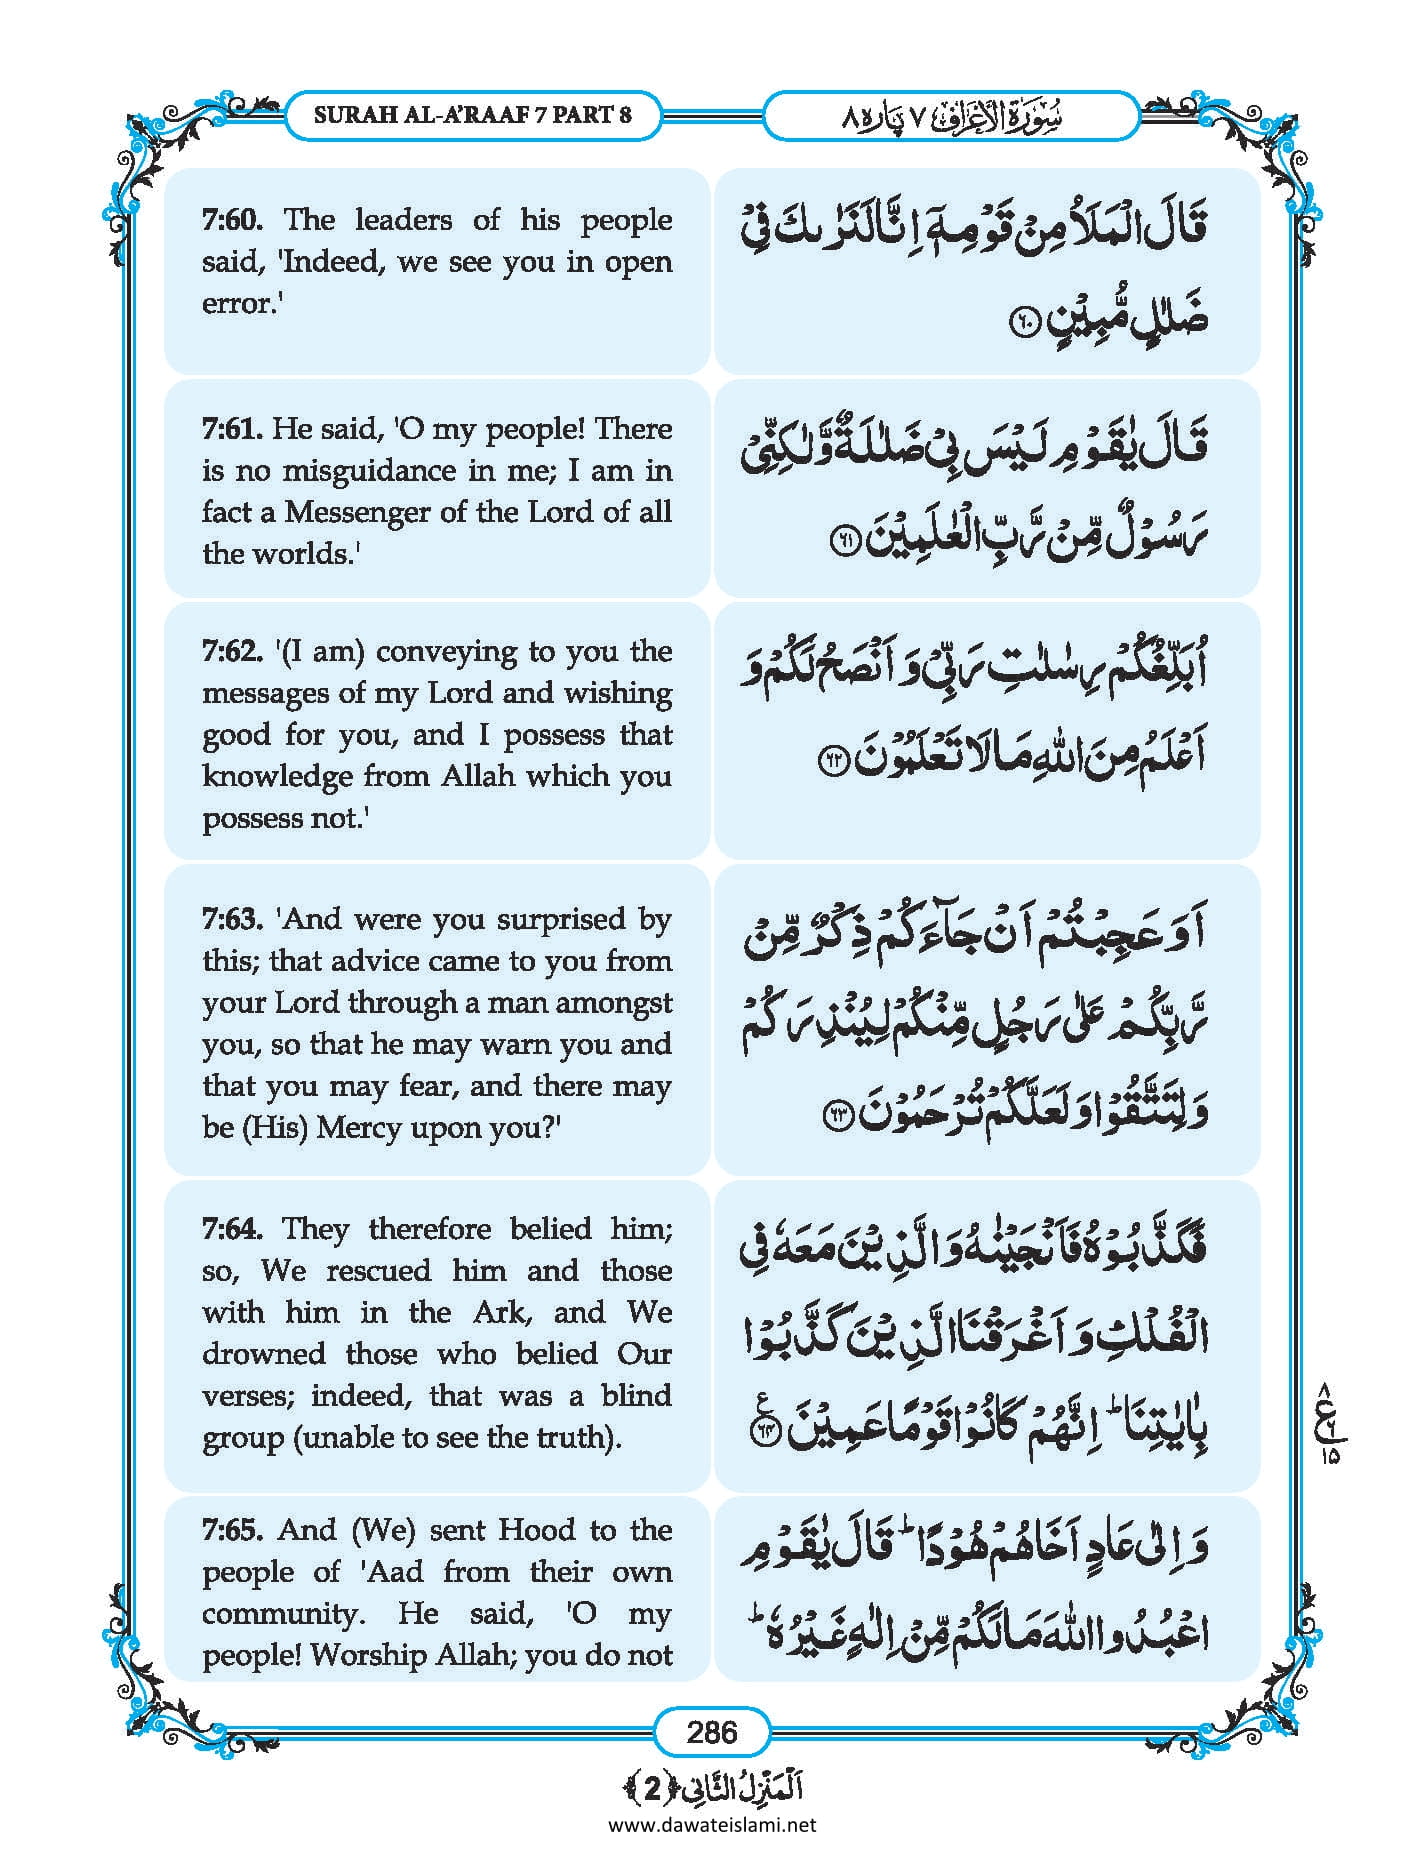 SURAH AL-A’RAAF 7 PART 8
سُوْرَةُ الْاَعْرَاف ٧ پارہ ٨
7:60. The leaders of his people
said, 'Indeed, we see you in open
error.'
قَالَ الْمَلَاُ مِنْ قَوْمِهٖۤ اِنَّا لَنَرٰىكَ فِیْ
ضَلٰلٍ مُّبِیْنٍ ﴿۶۰﴾
7:61. He said, 'O my people! There
is no misguidance in me; I am in
fact a Messenger of the Lord of all
the worlds.'
قَالَ یٰقَوْمِ لَیْسَ بِیْ ضَلٰلَةٌ وَّلٰكِنِّیْ
رَسُوْلٌ مِّنْ رَّبِّ الْعٰلَمِیْنَ ﴿۶۱﴾
7:62. '(I am) conveying to you the
messages of my Lord and wishing
good for you, and I possess that
knowledge from Allah which you
possess not.'
اُبَلِّغُكُمْ رِسٰلٰتِ رَبِّیْ وَ اَنْصَحُ لَكُمْ وَ
اَعْلَمُ مِنَ اللّٰهِ مَا لَا تَعْلَمُوْنَ ﴿۶۲﴾
7:63. 'And were you surprised by
this; that advice came to you from
your Lord through a man amongst
you, so that he may warn you and
that you may fear, and there may
be (His) Mercy upon you?'
اَوَ عَجِبْتُمْ اَنْ جَآءَكُمْ ذِكْرٌ مِّنْ
رَّبِّكُمْ عَلٰى رَجُلٍ مِّنْكُمْ لِیُنْذِرَكُمْ
وَ لِتَتَّقُوْا وَ لَعَلَّكُمْ تُرْحَمُوْنَ ﴿۶۳﴾
7:64. They therefore belied him;
so, We rescued him and those
with him in the Ark, and We
drowned those who belied Our
verses; indeed, that was a blind
group (unable to see the truth).
فَكَذَّبُوْهُ فَاَنْجَیْنٰهُ وَ الَّذِیْنَ مَعَهٗ فِی
الْفُلْكِ وَ اَغْرَقْنَا الَّذِیْنَ كَذَّبُوْا
بِاٰیٰتِنَاؕ اِنَّهُمْ كَانُوْا قَوْمًا عَمِیْنَ ﴿۶۴﴾ ع
٨
ع ٦
١٥
7:65. And (We) sent Hood to the
people of 'Aad from their own
community. He said, 'O my
people! Worship Allah; you do not
وَ اِلٰى عَادٍ اَخَاهُمْ هُوْدًاؕ قَالَ یٰقَوْمِ
اعْبُدُوا اللّٰهَ مَا لَكُمْ مِّنْ اِلٰهٍ غَیْرُهٗؕ
286
اَلْمَنْزِلُ الثَّانِی ﴿2﴾
www.dawateislami.net